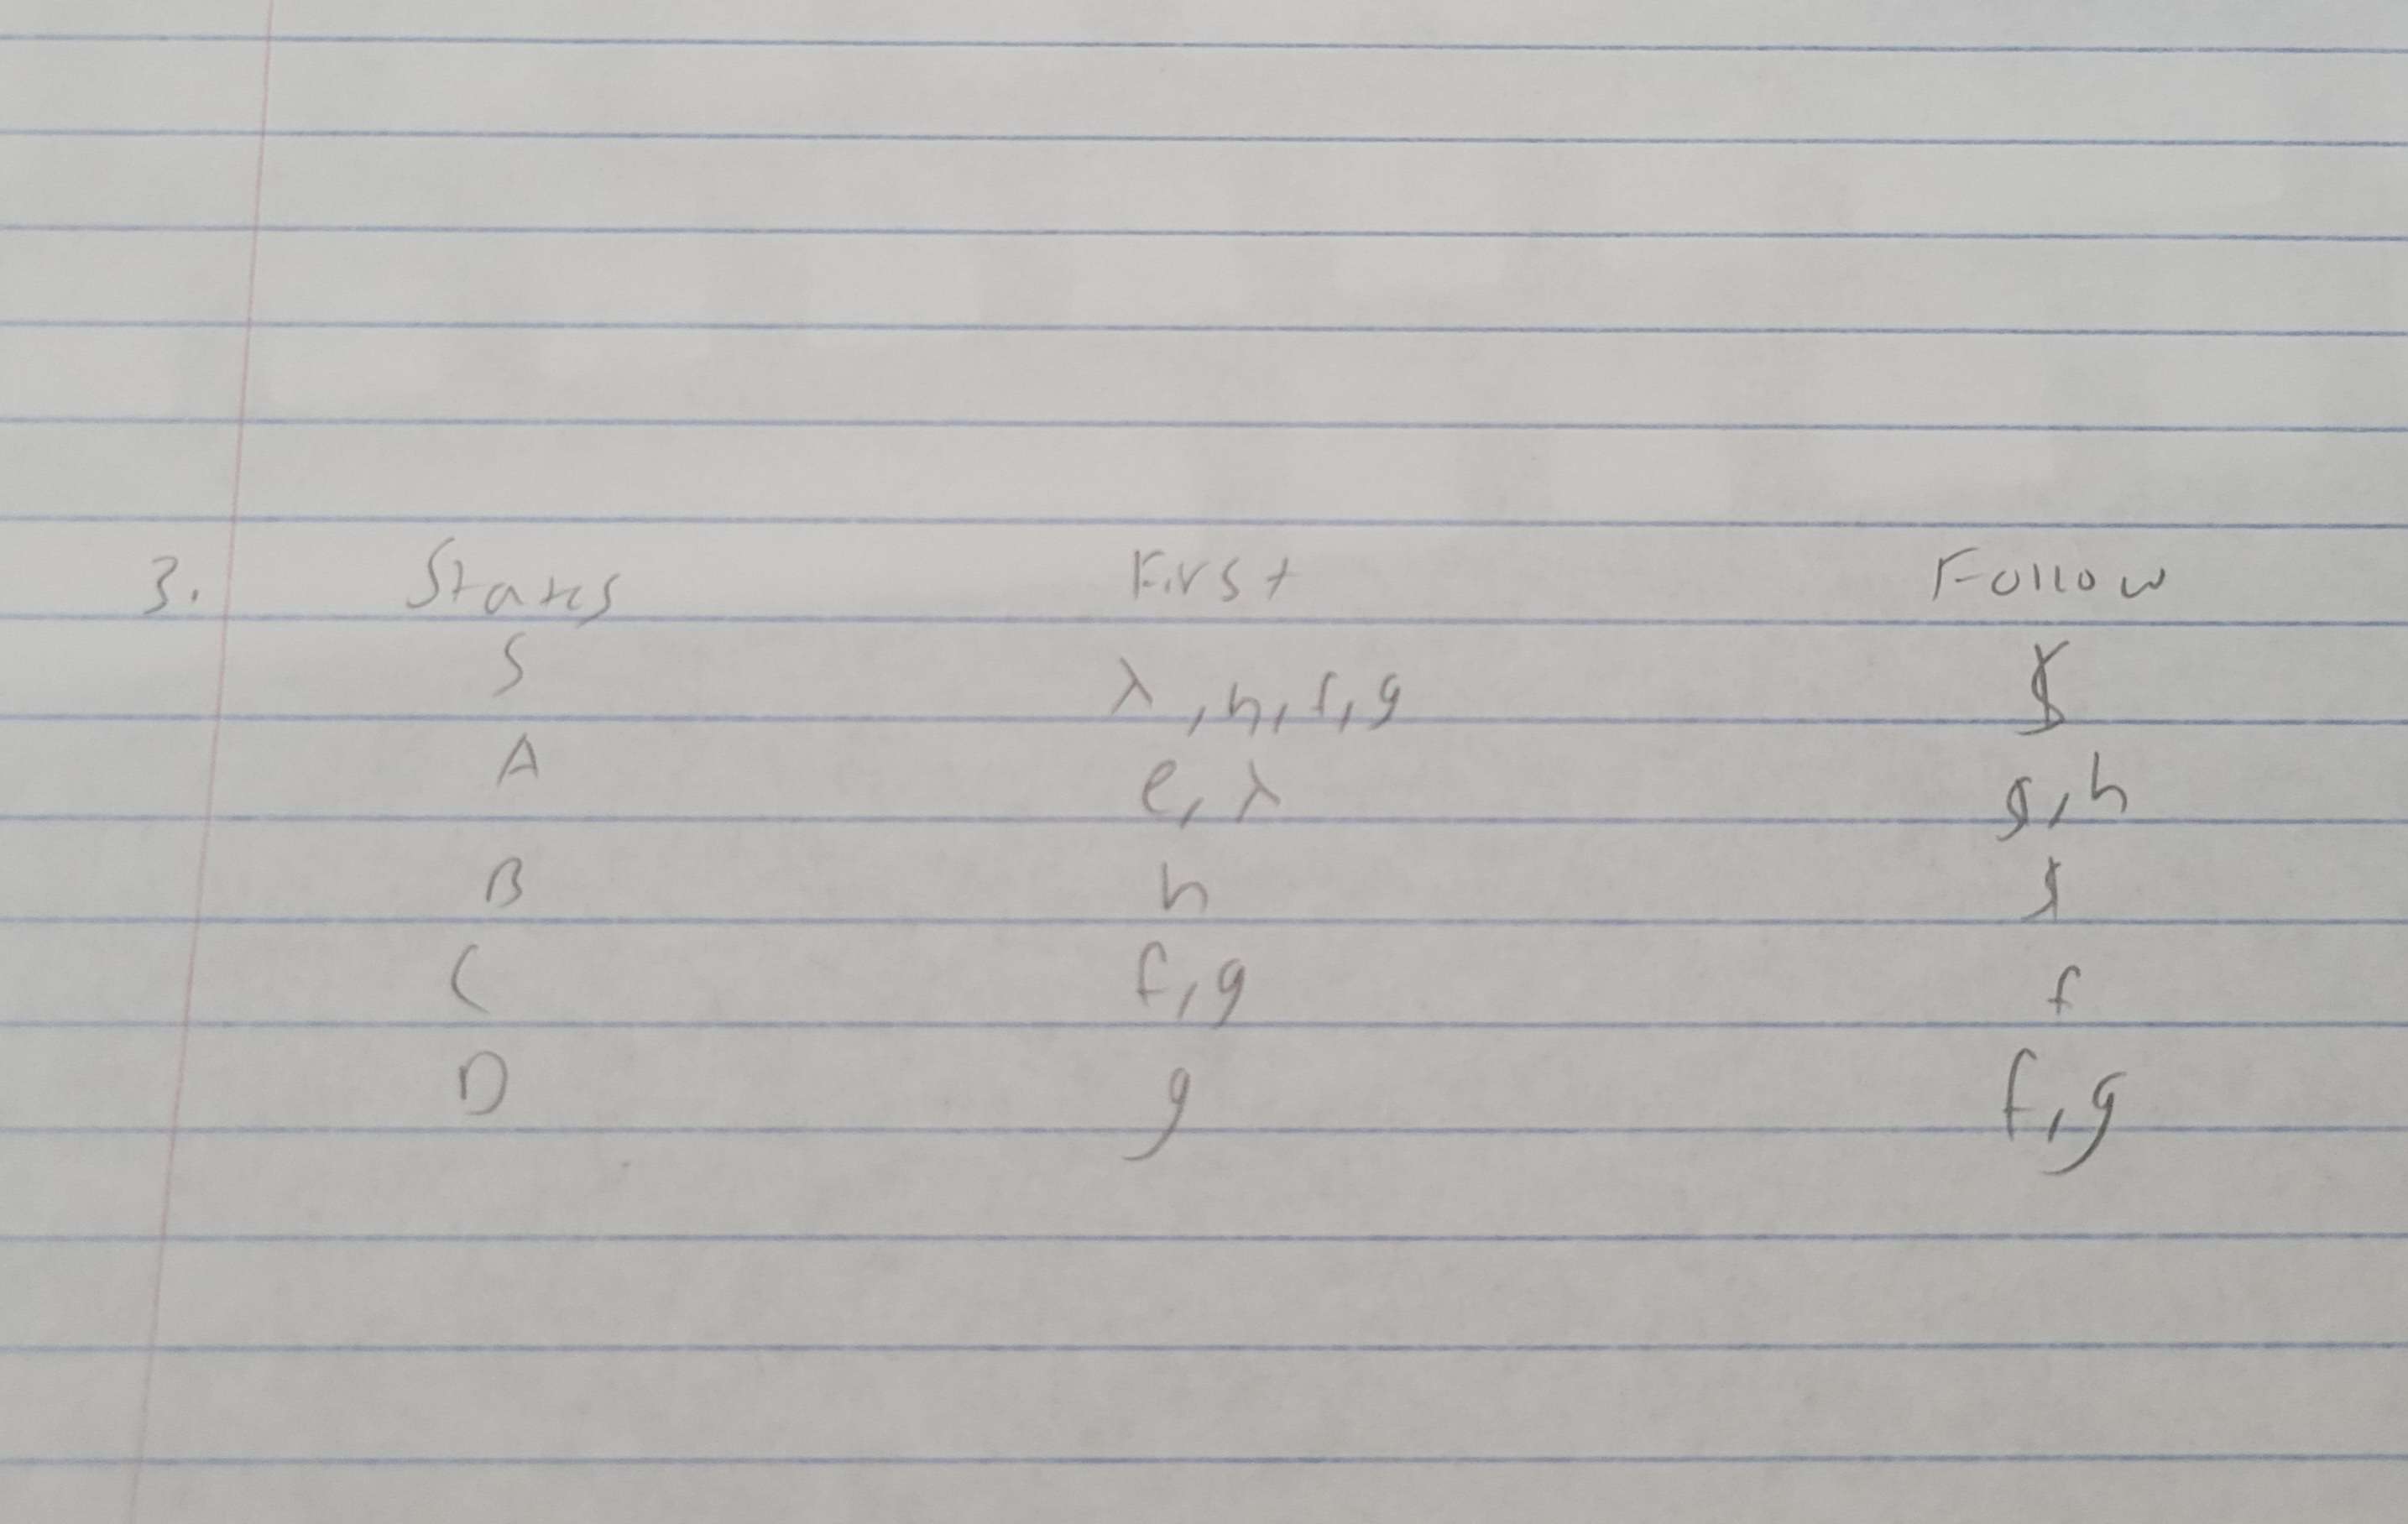 3. States First Follow
S λ, h, f, g $
A e, λ $, h
B h $
C f, g f
D g f, g